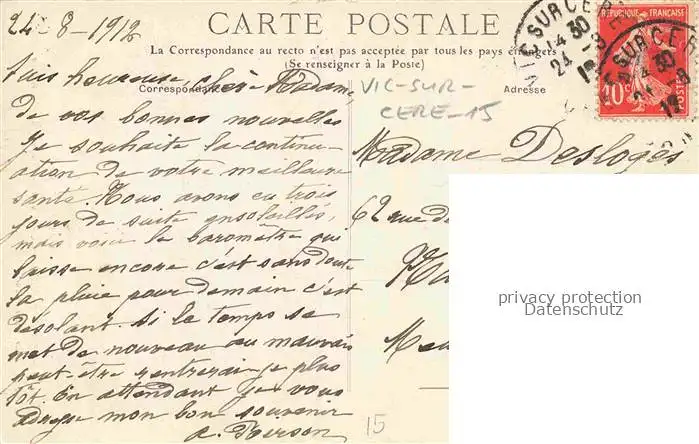 24-8-1912
CARTE POSTALE
La Correspondance au recto n'est pas acceptée par tous les pays étrangers
(Se renseigner à la Poste)
Correspondance
Adresse
VIC-SUR-
CERE-15
VIC SUR CERE
14 30
24 -8
12
RÉPUBLIQUE FRANÇAISE
10c
suis heureuse, chère Madame,
de vos bonnes nouvelles
Je souhaite la continu-
ation de votre meilleure
santé. Nous avons eu trois
jours de suite ensoleillés,
mais voici le baromètre qui
baisse encore c'est sans doute
la pluie pour demain c'est
désolant. Si le temps se
met de nouveau au mauvais
peut-être rentrerai-je plus
tôt. En attendant je vous
adresse mon bon souvenir
Madame Desloges
62 rue de
privacy protection
Datenschutz
15